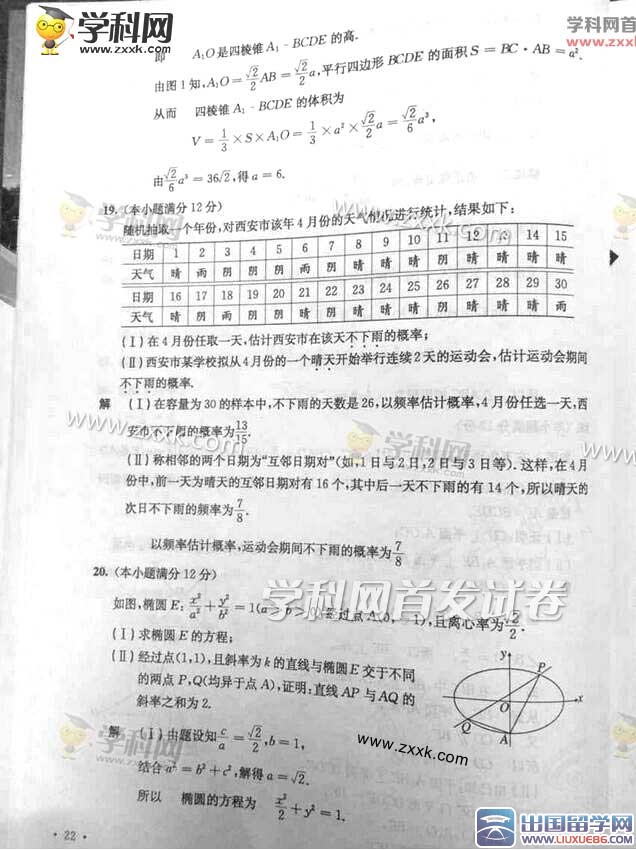 学科网
www.zxxk.com
学科网
www.zxxk
即 A₁O是四棱锥A₁-BCDE的高.
由图1知,A₁O=√2/2AB=√2/2a,平行四边形BCDE的面积S=BC·AB=a².
从而 四棱锥A₁-BCDE的体积为
V=1/3×S×A₁O=1/3×a²×√2/2a=√2/6a³,
由√2/6a³=36√2,得a=6.
学科网
www.zxxk.com
19.(本小题满分12分)
随机抽取一个年份,对西安市该年4月份的天气情况进行统计,结果如下:
日期 1 2 3 4 5 6 7 8 9 10 11 12 13 14 15
天气 晴 雨 阴 阴 阴 雨 阴 晴 晴 晴 阴 晴 晴 晴 晴
日期 16 17 18 19 20 21 22 23 24 25 26 27 28 29 30
天气 晴 阴 雨 阴 阴 晴 阴 晴 晴 晴 阴 晴 晴 晴 雨
(Ⅰ)在4月份任取一天,估计西安市在该天不下雨的概率;
(Ⅱ)西安市某学校拟从4月份的一个晴天开始举行连续2天的运动会,估计运动会期间
不下雨的概率.
解 (Ⅰ)在容量为30的样本中,不下雨的天数是26,以频率估计概率,4月份任选一天,西
安市不下雨的概率为13/15.
www.zxxk.com
学科网
www.zxxk.com
(Ⅱ)称相邻的两个日期为“互邻日期对”(如,1日与2日,2日与3日等).这样,在4月
份中,前一天为晴天的互邻日期对有16个,其中后一天不下雨的有14个,所以晴天的
次日不下雨的频率为7/8.
以频率估计概率,运动会期间不下雨的概率为7/8
学科网首发试卷
20.(本小题满分12分)
如图,椭圆E:x²/a²+y²/b²=1(a>b>0)经过点A(0,-1),且离心率为√2/2.
(Ⅰ)求椭圆E的方程;
(Ⅱ)经过点(1,1),且斜率为k的直线与椭圆E交于不同
的两点P,Q(均异于点A),证明:直线AP与AQ的
斜率之和为2.
y
P
O
x
Q
A
解 (Ⅰ)由题设知c/a=√2/2,b=1,
结合a²=b²+c²,解得a=√2.
所以 椭圆的方程为 x²/2+y²=1.
学科网
www.zxxk.com
www.zxxk.com
·22·
出国留学网
www.liuxue86.com